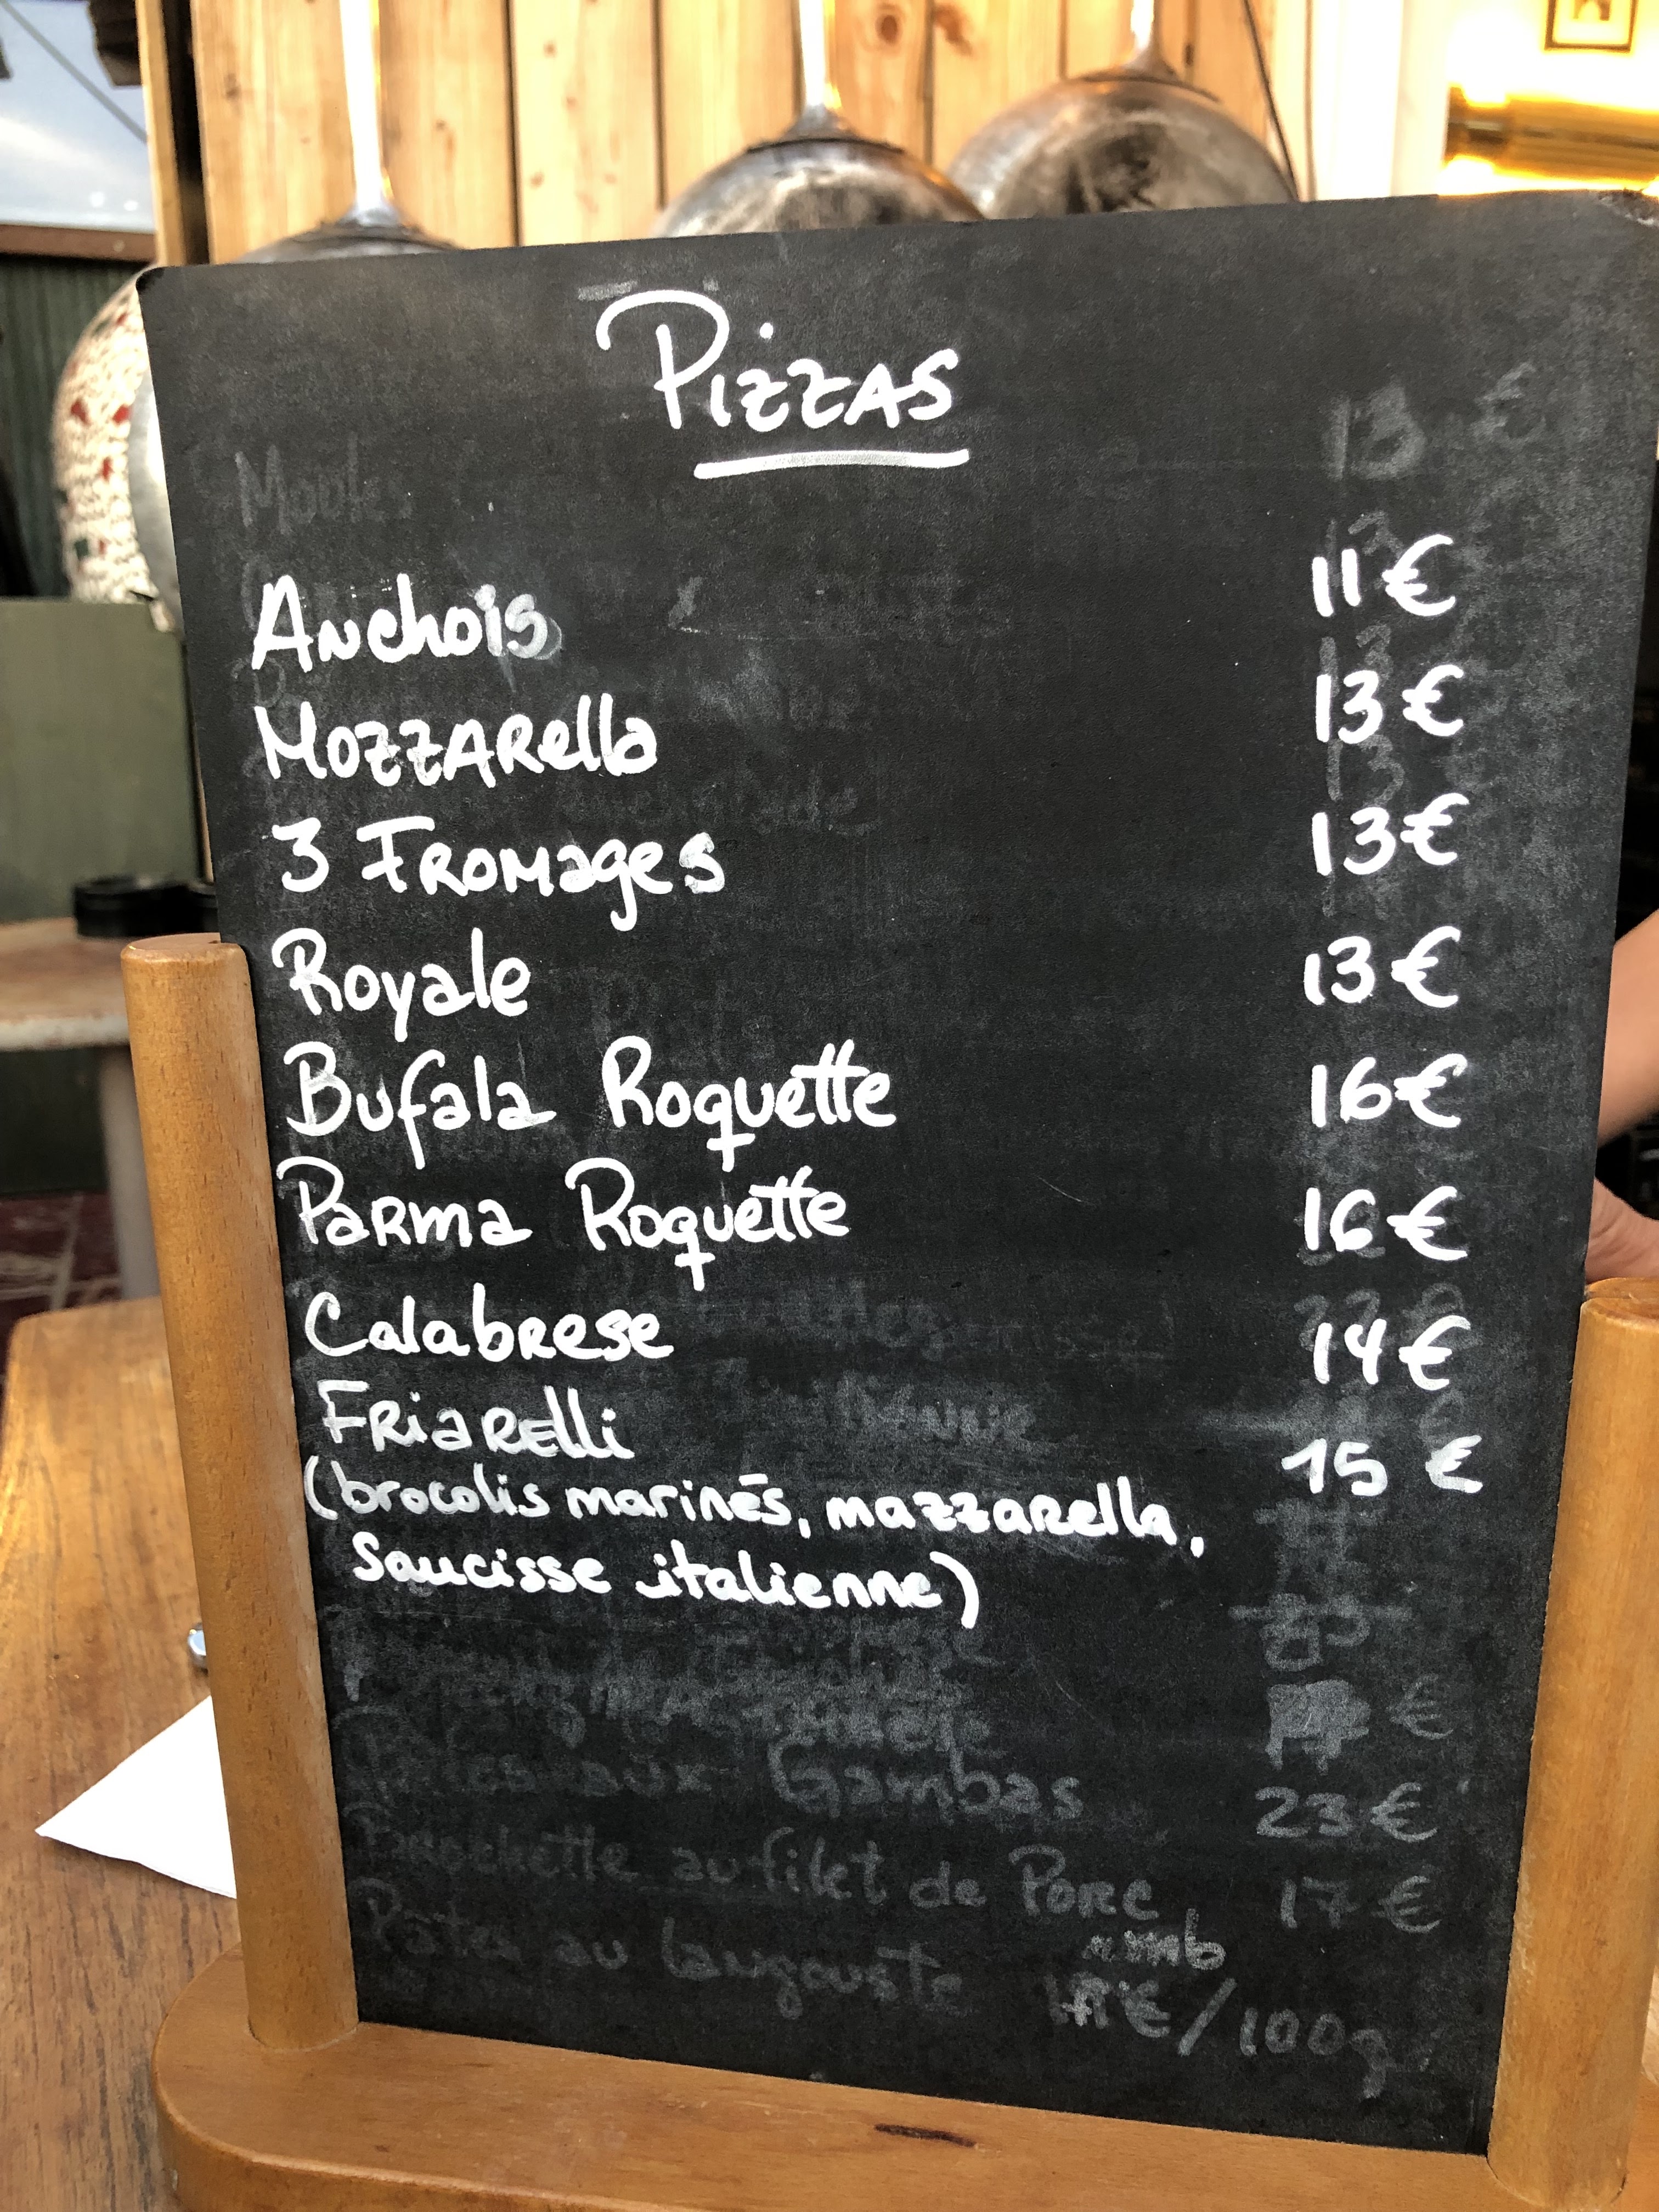 Pizzas
Anchois 11€
Mozzarella 13€
3 Fromages 13€
Royale 13€
Bufala Roquette 16€
Parma Roquette 16€
Calabrese 14€
Friarelli 15 €
(brocolis marinés, mazzarella,
saucisse italienne)
aux Gambas 23€
Brochette au filet de Porc 17€
Pâtes au langouste
€/100g